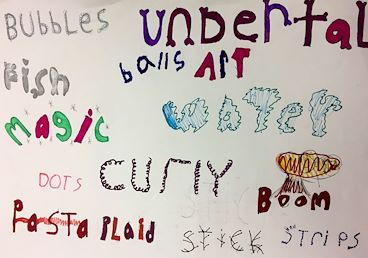 BUBBLES
UNDERTAL
balls ART
Fish
WATER
magic
DOTS
CURlY
BOOM
PASTA PLAID
STICK
STRIPS